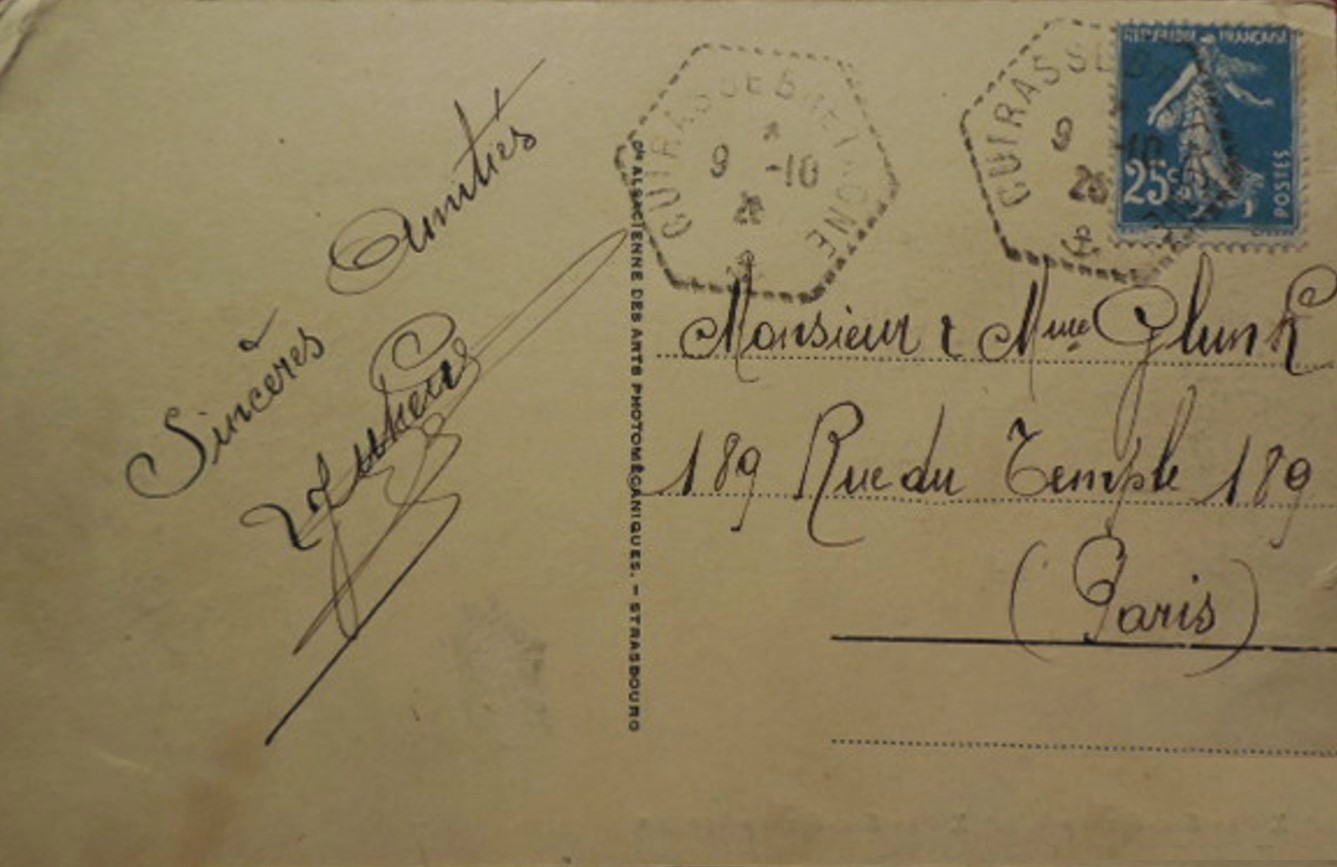 Sincères Amitiés
Cie ALSACIENNE DES ARTS PHOTOMÉCANIQUES. - STRASBOURG
CUIRASSE BRETAGNE
9 -10
26
CUIRASSE
9 -10
26
REPUBLIQUE FRANÇAISE
25c
POSTES
Monsieur & Mme Glunk
189 Rue du Temple 189
(Paris)